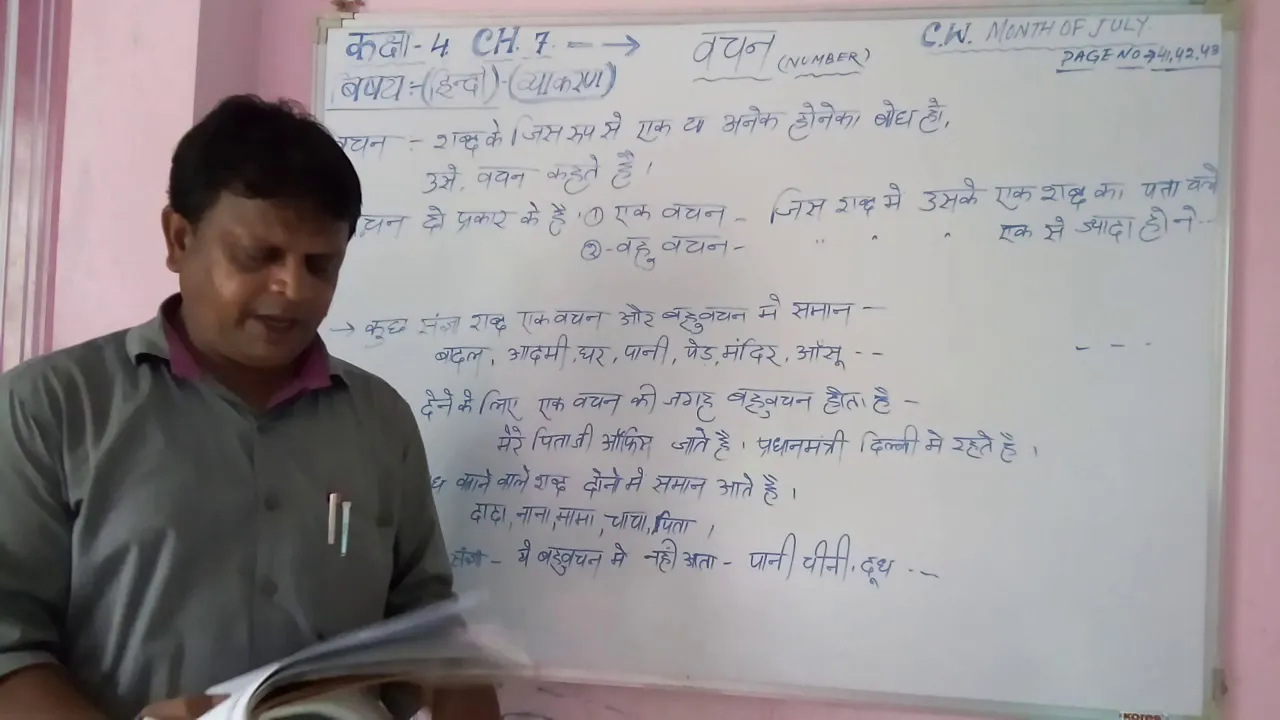 कक्षा-4 CH. 7. --→ वचन (NUMBER) C.W. MONTH OF JULY.
PAGE NO→41,42,43
बिषय:-(हिन्दी)-(व्याकरण)
वचन :- शब्द के जिस रूप से एक या अनेक होनेका बोध हो,
उसे, वचन कहते है।
वचन दो प्रकार के है ① एक वचन - जिस शब्द मे उसके एक शब्द का पता चले
②-वहु वचन - " " " एक से ज्यादा होने --
→ कुछ संज्ञा शब्द एकवचन और बहुवचन मे समान -
बादल, आदमी, घर, पानी, पेड़, मंदिर, आँसू -- - - -
देने के लिए एक वचन की जगह बहुवचन होता है -
मेरे पिताजी ऑफिस जाते है। प्रधानमंत्री दिल्ली मे रहते है।
वाले शब्द दोनो मे समान आते है।
दादा, नाना, मामा, चाचा, पिता,
- ये बहुवचन मे नही आता - पानी चीनी, दूध --
kores